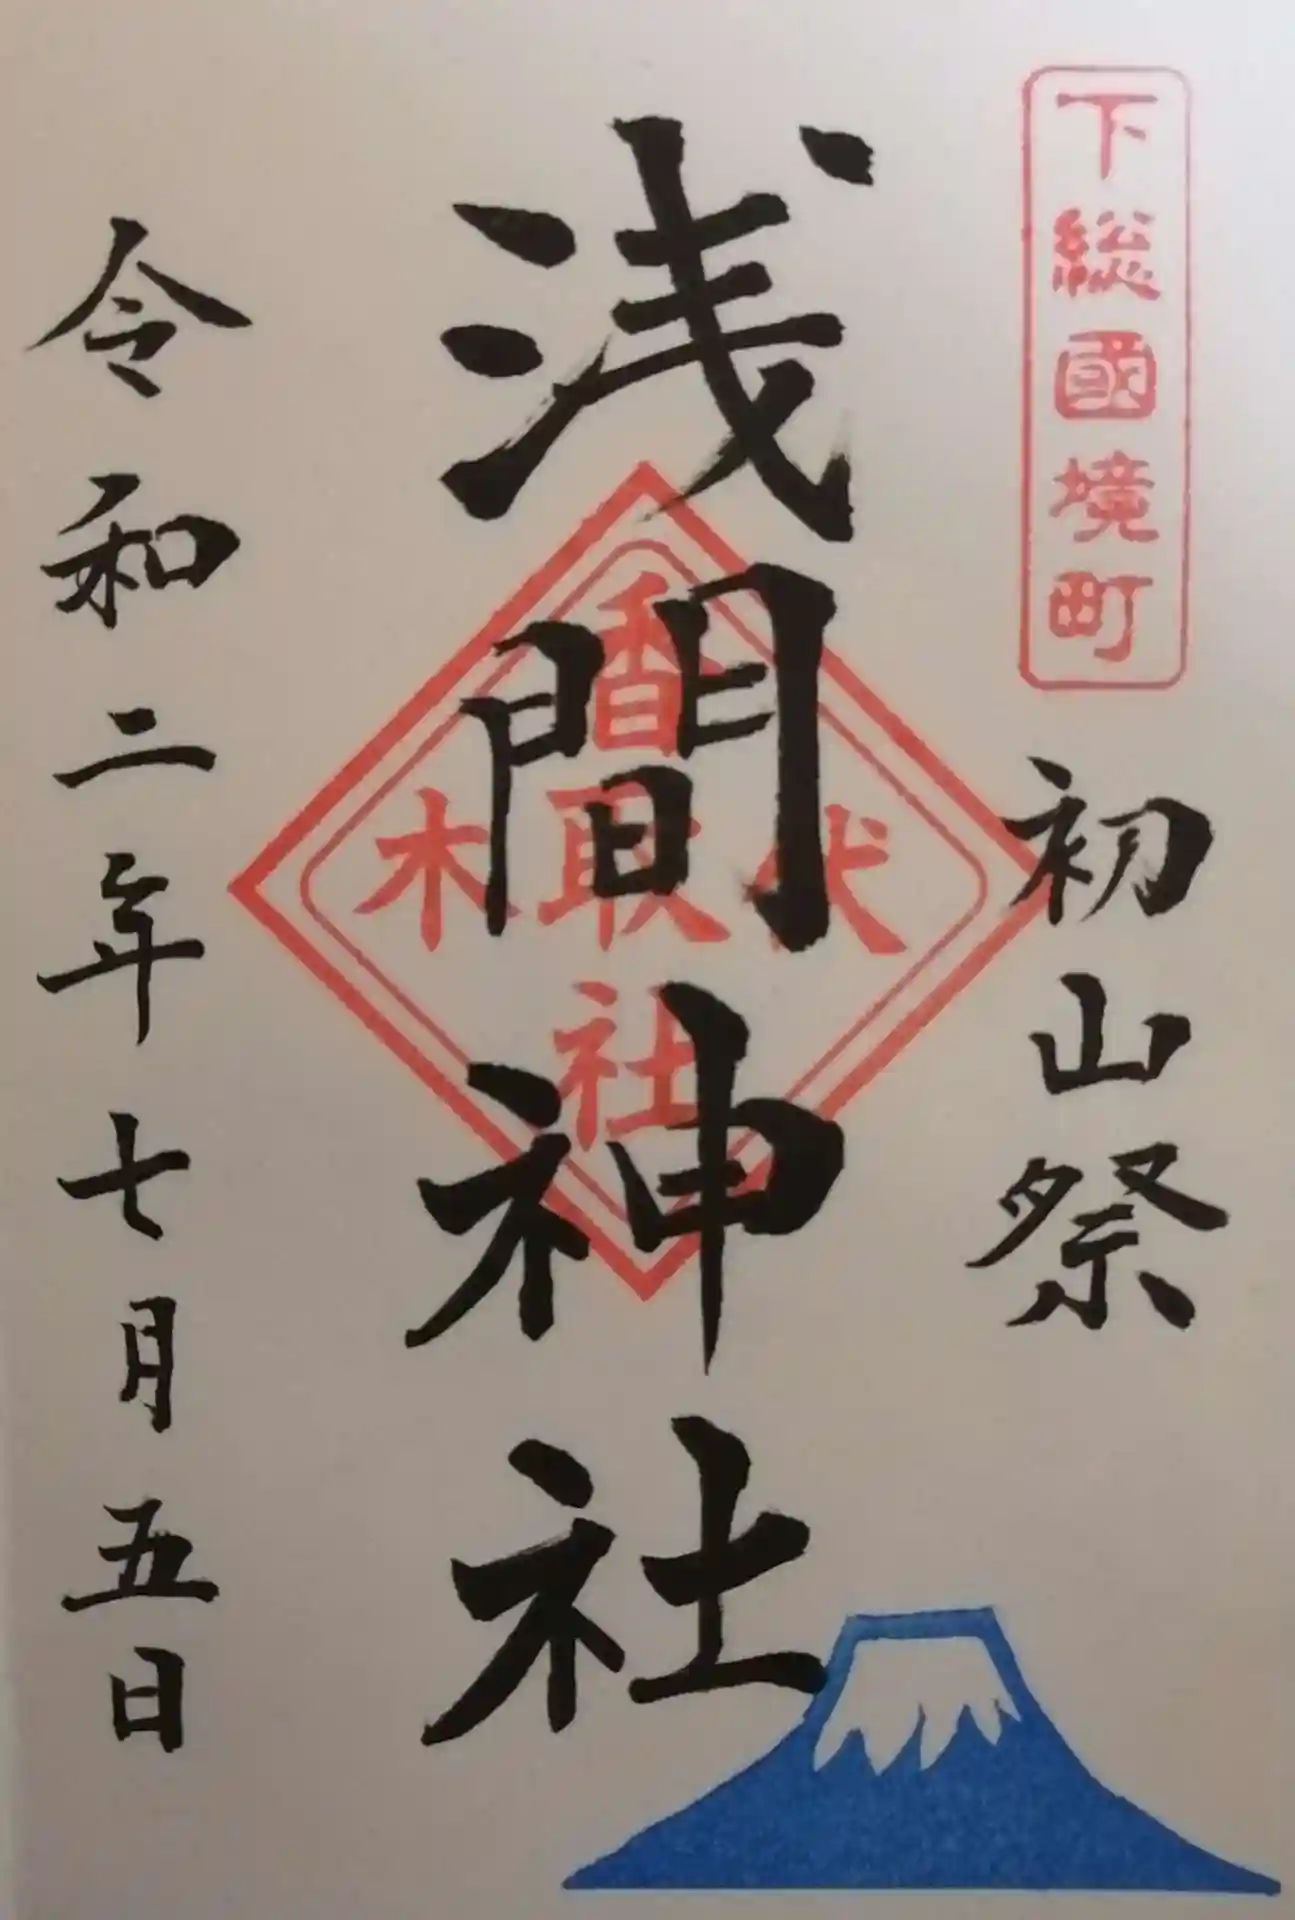 下総國境町
初山祭
浅間神社
伏木
香取社
令和二年七月五日